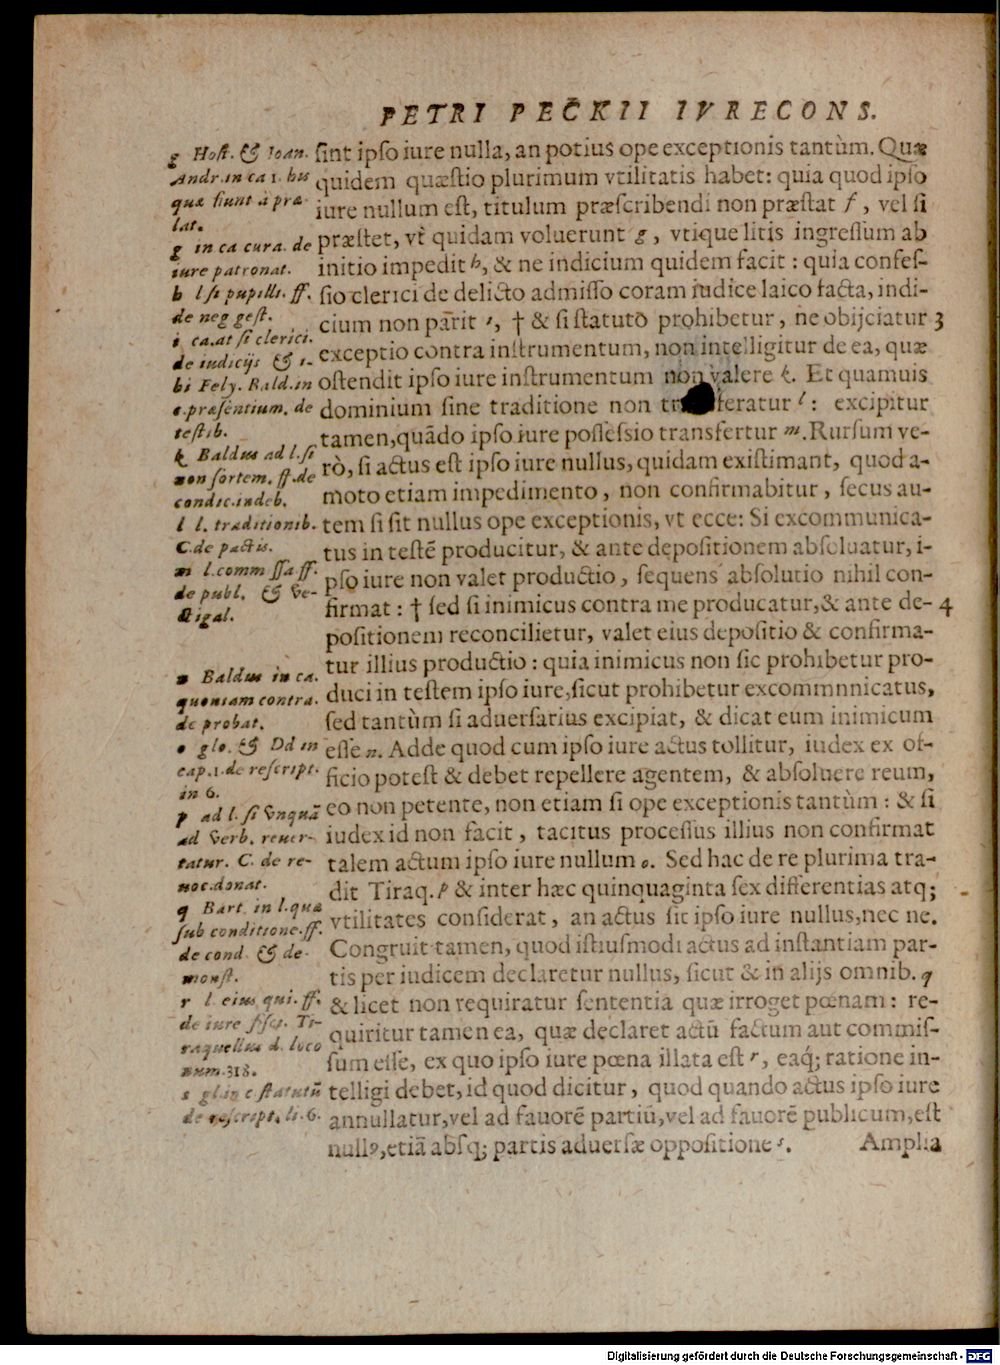 PETRI PECKII IVRECONS.
g Hoſt. & Ioan.
Andr. in ca 1. his
quæ fiunt à præ-
lat.
g in ca cura. de
iure patronat.
h l ſi pupilli. ff.
de neg geſt.
i ca. at ſi clerici.
de iudicijs & i-
bi Fely. Bald. in
c. præſentium. de
teſtib.
k Baldus ad l. ſi
non ſortem. ff. de
condic. indeb.
l l. traditionib.
C. de pactis.
m l. comm ſſa ff.
de publ. & ve-
ctigal.
n Baldus in ca.
quoniam contra.
de probat.
o glo. & Dd in
cap. 1. de reſcript.
in 6.
p ad l. ſi vnquã
ad verb. reuer-
tatur. C. de re-
uoc. donat.
q Bart. in l. quæ
ſub conditione. ff.
de cond. & de-
monſt.
r l. eius qui. ff.
de iure fiſci. Ti-
raquellus d. loco
num. 318.
s gl. in c ſtatutũ
de reſcript. li. 6.
ſint ipſo iure nulla, an potius ope exceptionis tantùm. Quæ
quidem quæſtio plurimum vtilitatis habet: quia quod ipſo
iure nullum eſt, titulum præſcribendi non præſtat f, vel ſi
præſtet, vt quidam voluerunt g, vtique litis ingreſſum ab
initio impedit h, & ne indicium quidem facit: quia confeſ-
ſio clerici de delicto admiſſo coram iudice laico facta, indi-
cium non parit i, † & ſi ſtatuto prohibetur, ne obijciatur 3
exceptio contra inſtrumentum, non intelligitur de ea, quæ
oſtendit ipſo iure inſtrumentum non valere k. Et quamuis
dominium ſine traditione non feratur l: excipitur
tamen, quãdo ipſo iure poſſeſſio transfertur m. Rurſum ve-
rò, ſi actus eſt ipſo iure nullus, quidam exiſtimant, quod a-
moto etiam impedimento, non confirmabitur, ſecus au-
tem ſi ſit nullus ope exceptionis, vt ecce: Si excommunica-
tus in teſtẽ producitur, & ante depoſitionem abſoluatur, i-
pſo iure non valet productio, ſequens abſolutio nihil con-
firmat: † ſed ſi inimicus contra me producatur, & ante de- 4
poſitionem reconcilietur, valet eius depoſitio & confirma-
tur illius productio: quia inimicus non ſic prohibetur pro-
duci in teſtem ipſo iure, ſicut prohibetur excommnnicatus,
ſed tantùm ſi aduerſarius excipiat, & dicat eum inimicum
eſſe n. Adde quod cum ipſo iure actus tollitur, iudex ex of-
ficio poteſt & debet repellere agentem, & abſoluere reum,
eo non petente, non etiam ſi ope exceptionis tantùm: & ſi
iudex id non facit, tacitus proceſſus illius non confirmat
talem actum ipſo iure nullum o. Sed hac de re plurima tra-
dit Tiraq. p & inter hæc quinquaginta ſex differentias atq;
vtilitates conſiderat, an actus ſit ipſo iure nullus, nec ne.
Congruit tamen, quod iſtiuſmodi actus ad inſtantiam par-
tis per iudicem declaretur nullus, ſicut & in alijs omnib. q
& licet non requiratur ſententia quæ irroget pœnam: re-
quiritur tamen ea, quæ declaret actũ factum aut commiſ-
ſum eſſe, ex quo ipſo iure pœna illata eſt r, eaq́; ratione in-
telligi debet, id quod dicitur, quod quando actus ipſo iure
annullatur, vel ad fauorẽ partiũ, vel ad fauorẽ publicum, eſt
nullꝰ, etiã abſq; partis aduerſæ oppoſitione s.
Amplia
Digitalisierung gefördert durch die Deutsche Forschungsgemeinschaft - DFG